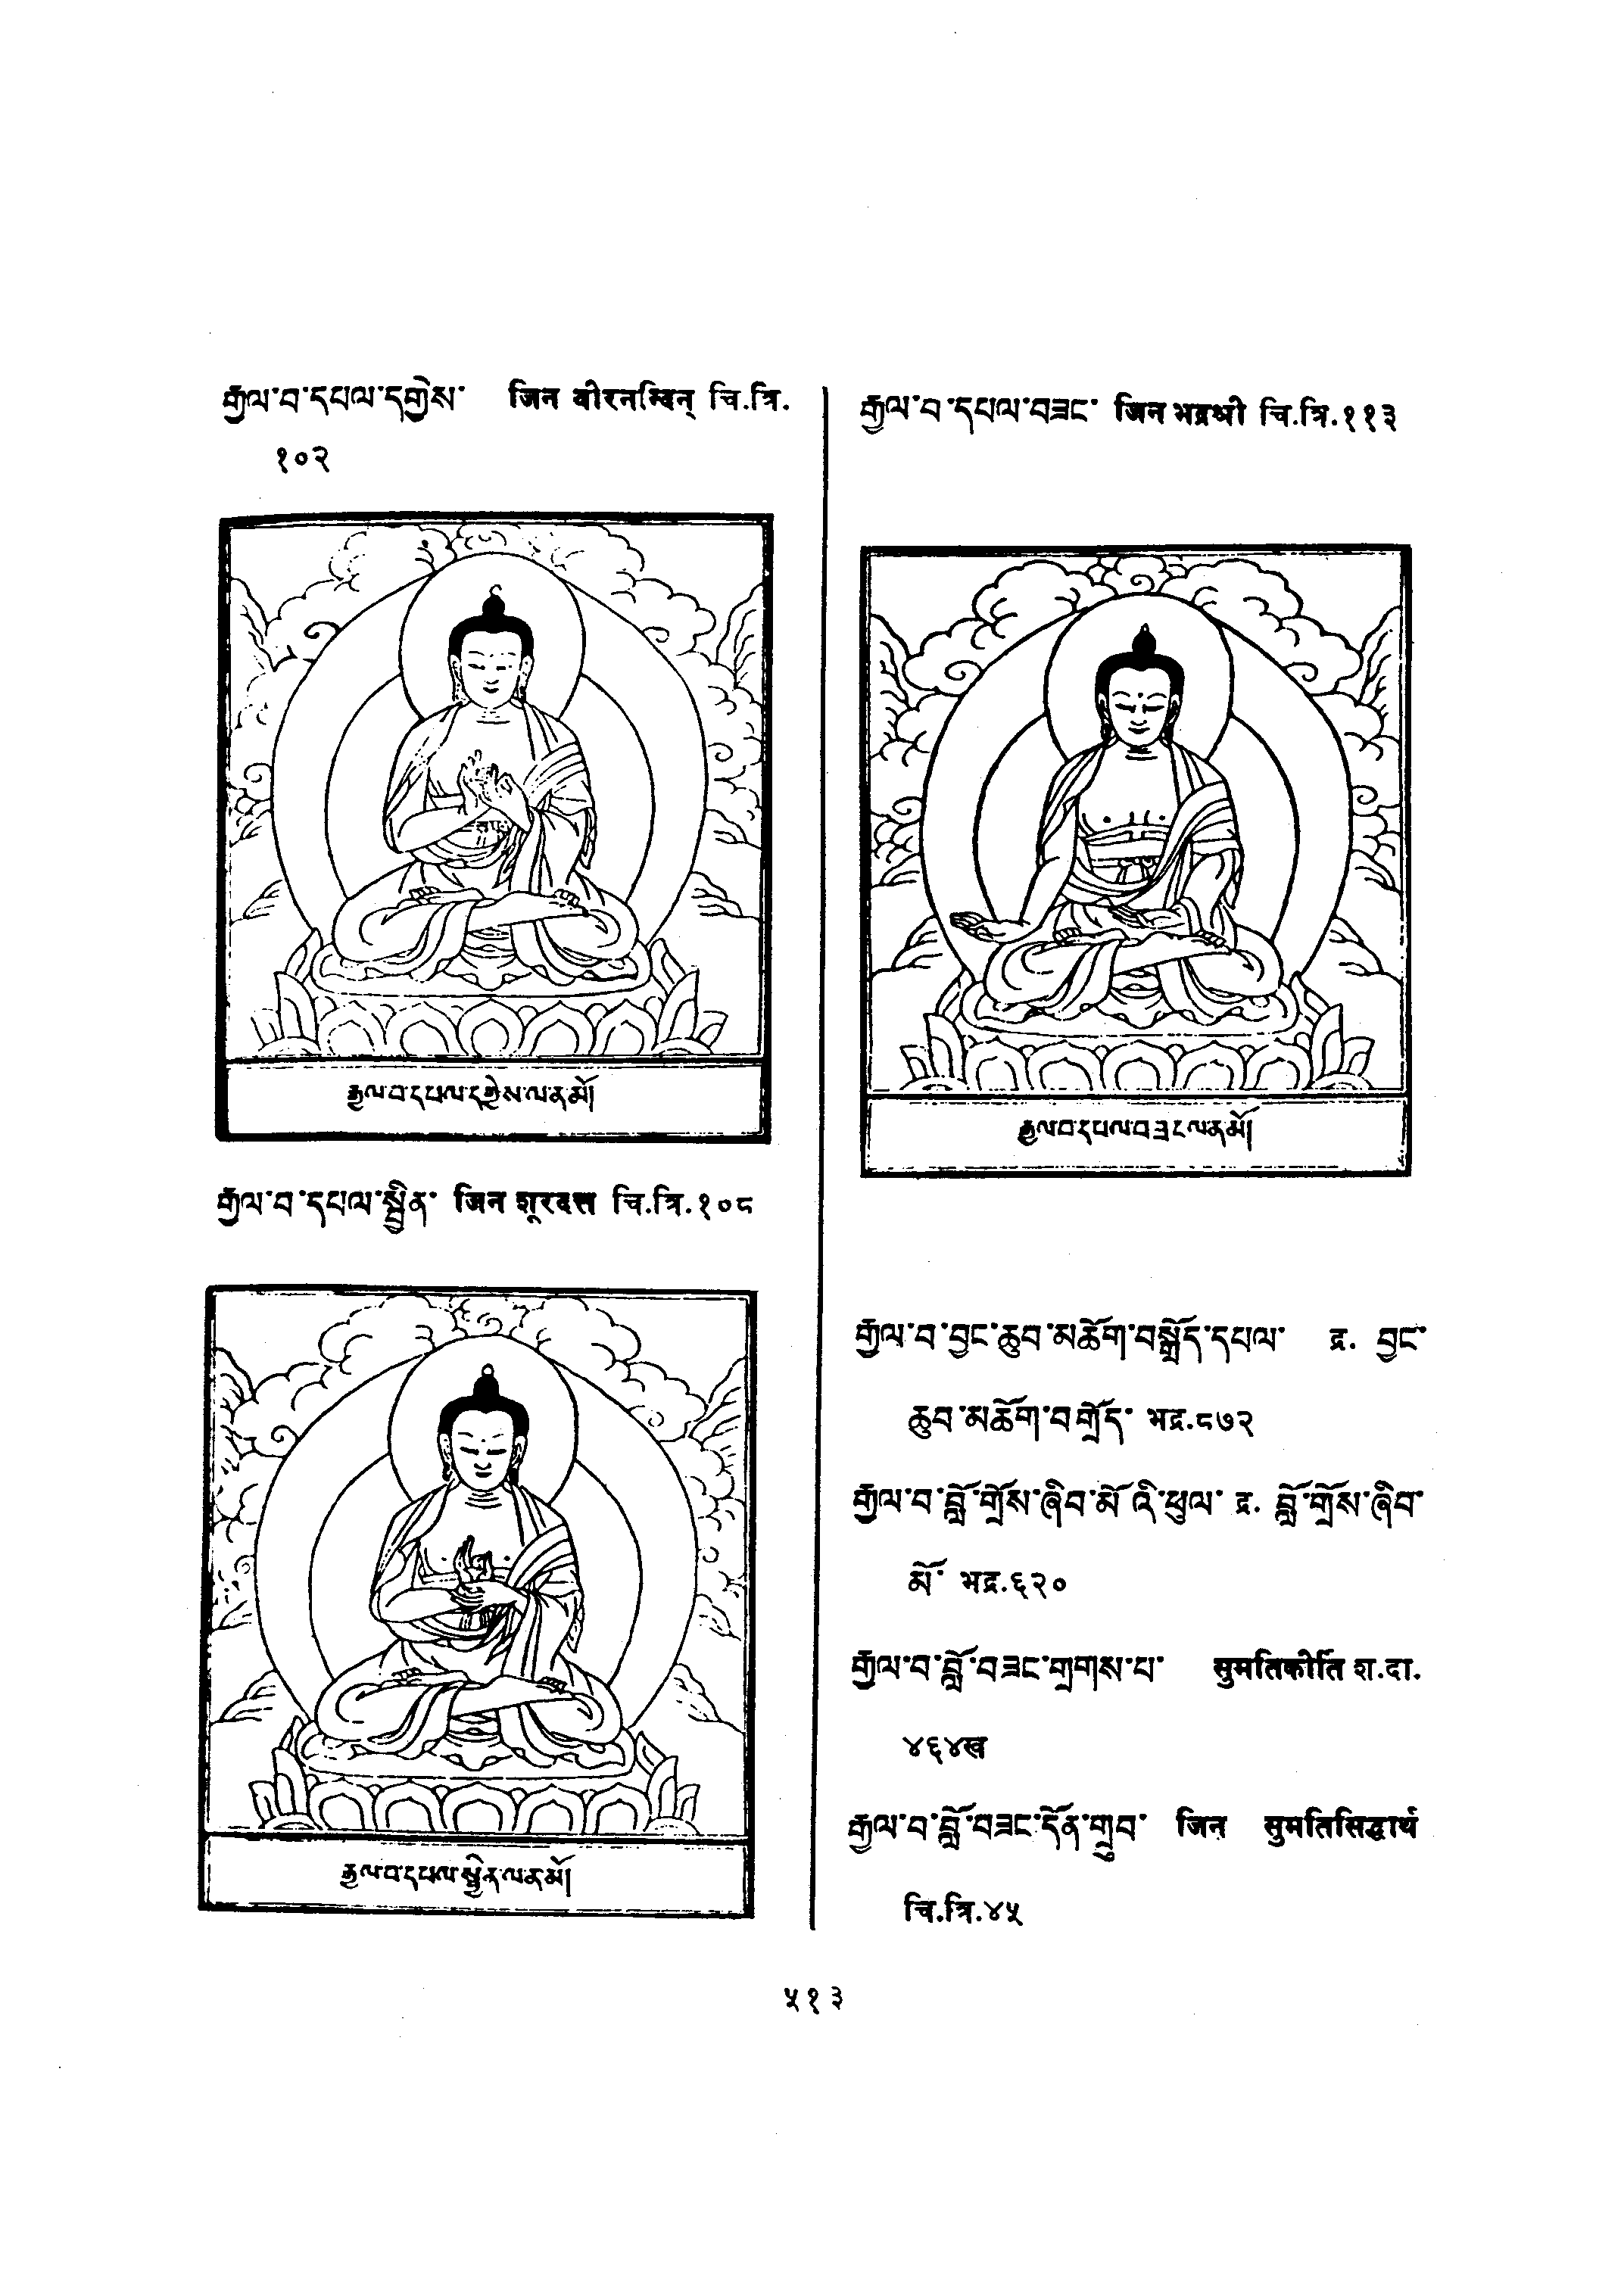 རྒྱལ་བ་དཔལ་དགྱེས་ जिन वीरनन्दिन् चि.त्रि.
१०२
རྒྱལ་བ་དཔལ་དགྱེས་ལ་ན་མོ།
རྒྱལ་བ་དཔལ་སྦྱིན་ जिन शूरदत्त चि.त्रि.१०८
རྒྱལ་བ་དཔལ་སྦྱིན་ལ་ན་མོ།
རྒྱལ་བ་དཔལ་བཟང་ जिन भद्रश्री चि.त्रि.११३
རྒྱལ་བ་དཔལ་བཟང་ལ་ན་མོ།
རྒྱལ་བ་བྱང་ཆུབ་མཆོག་བསྒྲོད་དཔལ་ द्र. བྱང་
ཆུབ་མཆོག་བགྲོད་ भद्र.८७२
རྒྱལ་བ་བློ་གྲོས་ཞིབ་མོ་འི་ཕུལ་ द्र. བློ་གྲོས་ཞིབ་
མོ་ भद्र.६२०
རྒྱལ་བ་བློ་བཟང་གྲགས་པ་ सुमतिकीर्ति श.दा.
४६४ख
རྒྱལ་བ་བློ་བཟང་དོན་གྲུབ་ जिन सुमतिसिद्धार्थ
चि.त्रि.४५
५१३